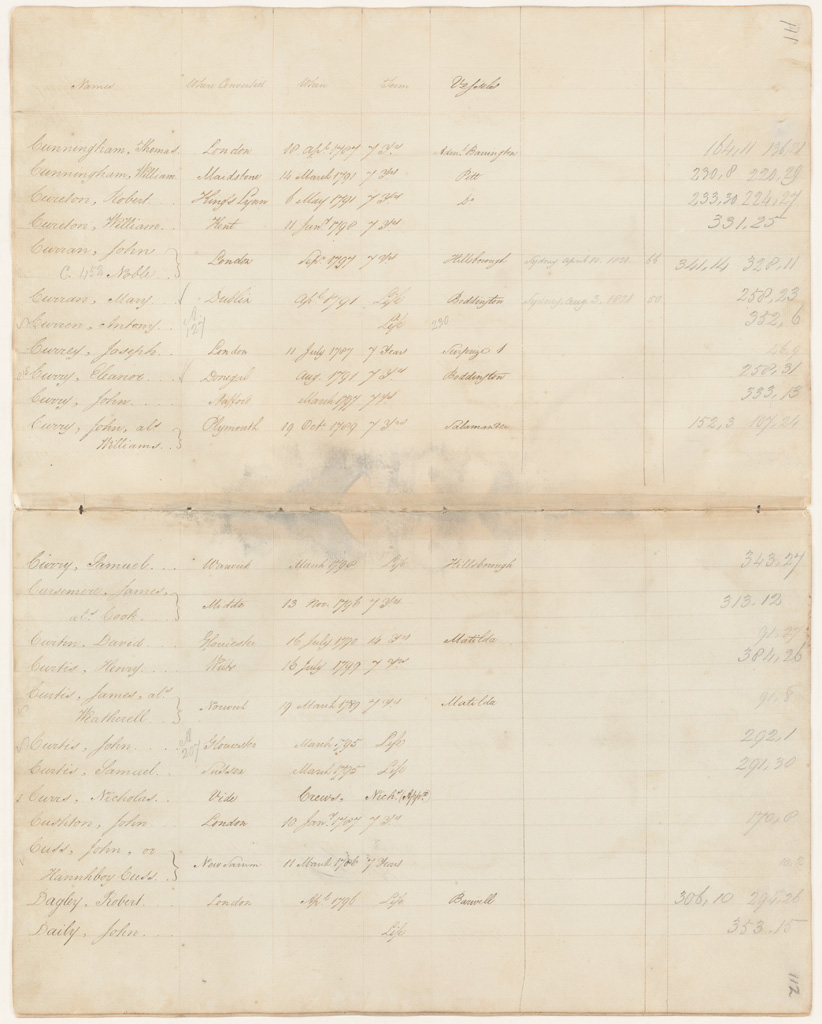 111
Names Where Convicted When Term Vessels
Cunningham, Thomas London 18 Apl. 1787 7 Yrs Adml. Barrington 164,11
Cunningham, William Maidstone 14 March 1791 7 Yrs Pitt 230,8 220,29
Cureton, Robert King's Lynn 6 May 1791 7 Yrs Do 233,30 224,27
Cureton, William Kent 11 Jany. 1798 7 Yrs 331,25
Curran, John
C. Noble London Sepr. 1797 7 Yrs Hillsborough Sydney April 341,14 328,11
Curran, Mary Dublin Life Boddington Sydney, Aug 258,23
Curren, Antony Life 352,6
Currey, Joseph London 11 July 1787 7 Years Surprize 1
Curry, Eleanor Donegal Aug. 1791 7 Yrs Boddington 258,31
Curry, John Stafford March 1797 7 Yrs 333,13
Curry, John, als Plymouth 19 Oct 1789 7 Yrs Salamander 152,3 167,24
Williams
Curry, Samuel Warwick March 1798 Life Hillsborough 343,27
Cursemore, James,
als. Cook Middx 13 Nov. 1796 7 Yrs 313,12
Curtin, David Gloucester 16 July 1790 14 Yrs Matilda 91,27
Curtis, Henry Wilts 16 July 1799 7 Yrs 384,26
Curtis, James, als.
Weathwell Norwich 19 March 1789 7 Yrs Matilda 91,8
Curtis, John Gloucester March 1795 Life 292,1
Curtis, Samuel Sussex March 1795 Life 291,30
Curvis, Nicholas Vide Crews, Nichs. (Appx)
Cushton, John London 10 Jany. 1787 7 Yrs 170,8
Cuss, John, or
Hannkboy Cuss New Sarum 11 March 1786 7 Years
Dagley, Robert London 1796 Life Barwell 306,10 295,26
Daily, John Life 353,15
112